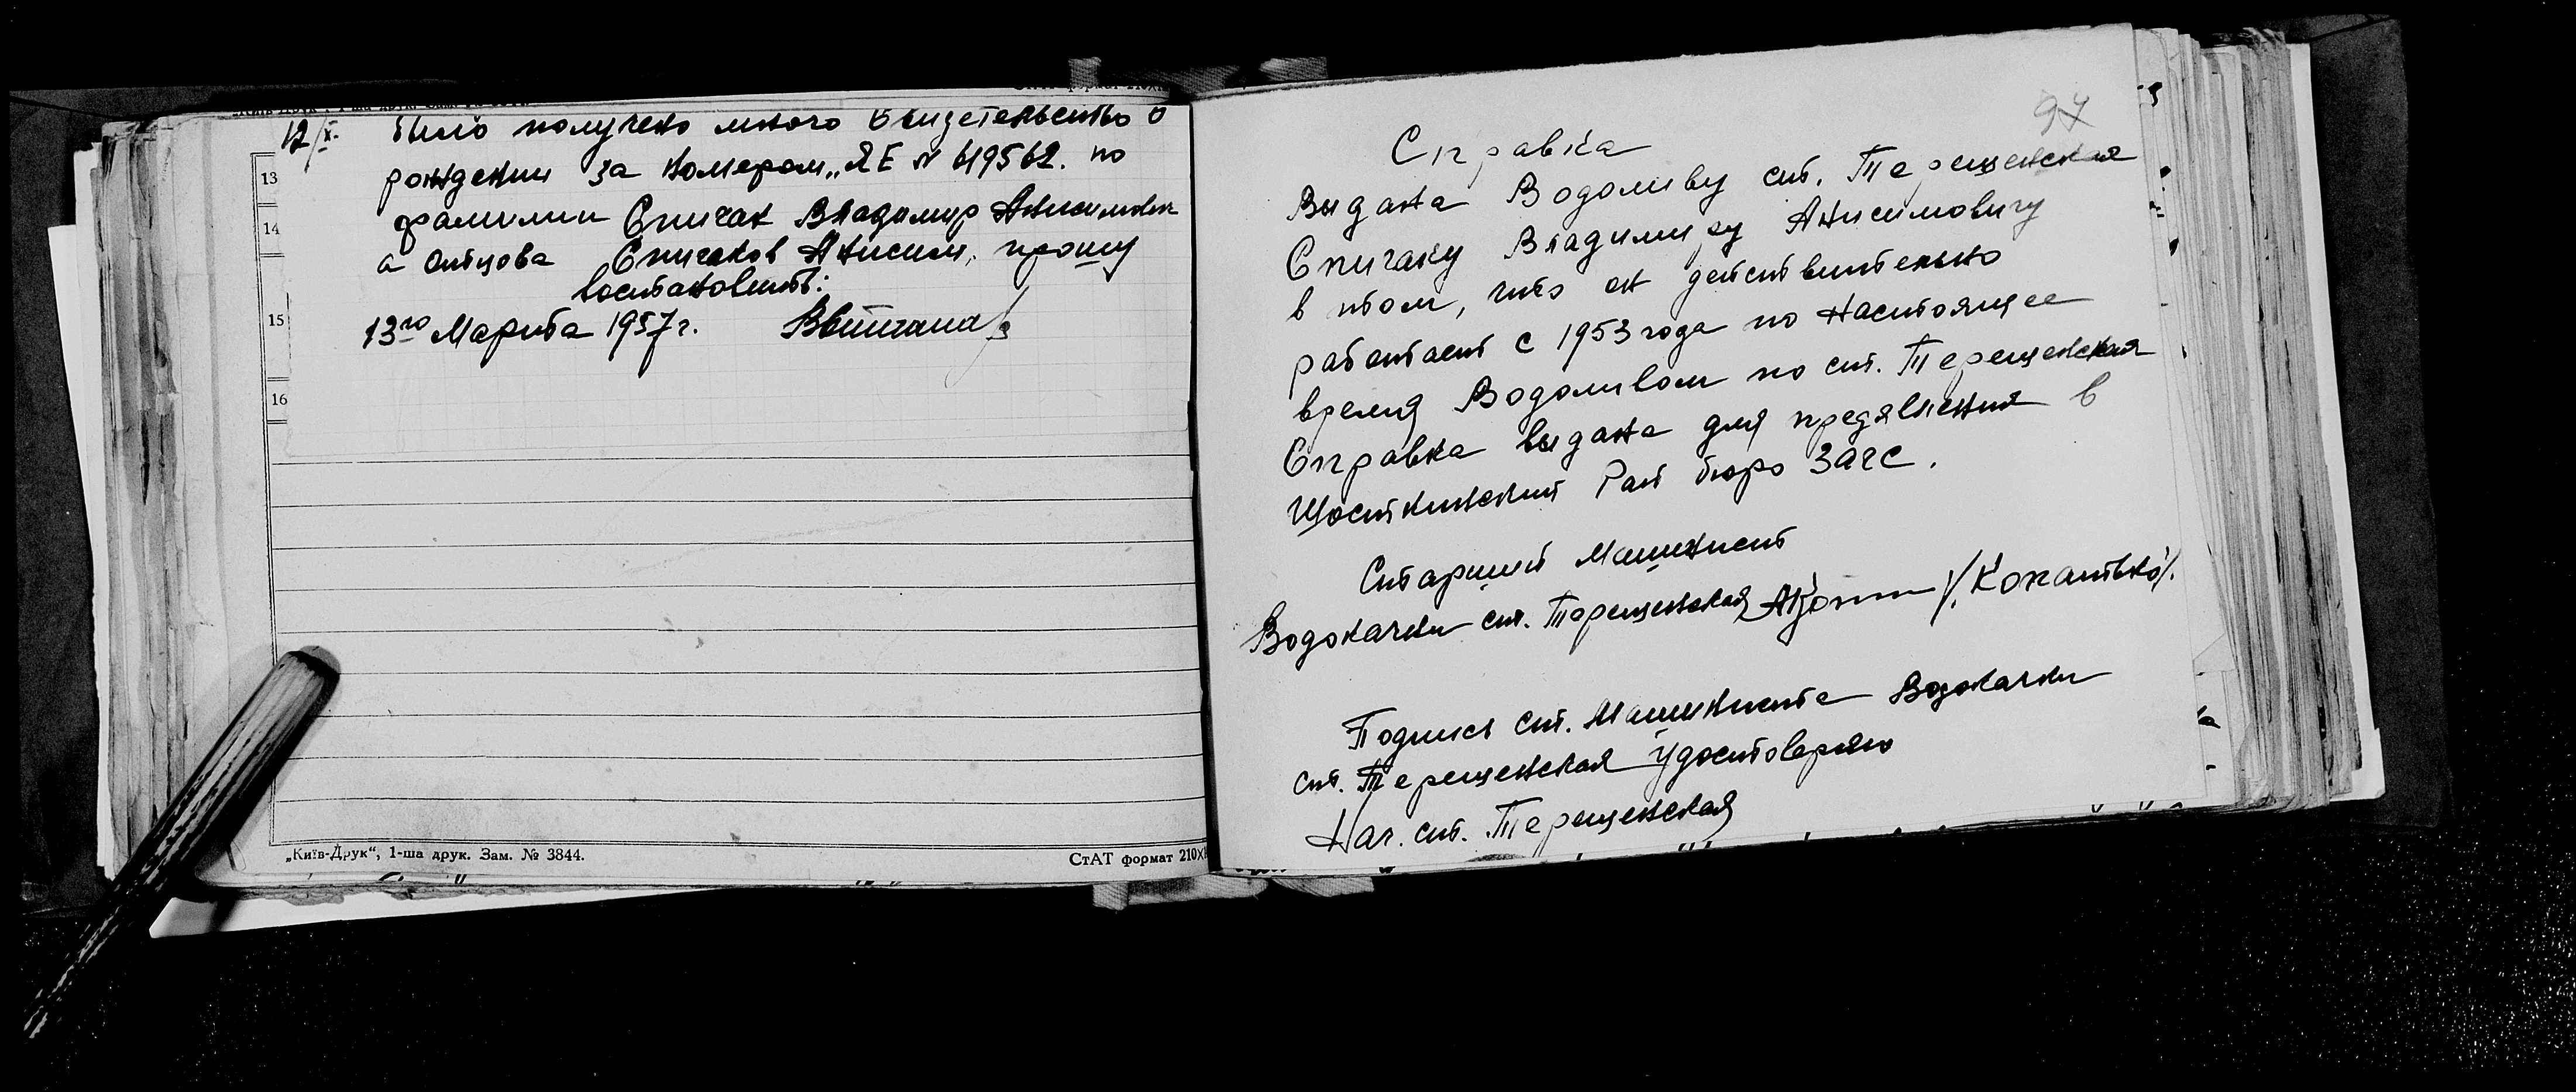 12/X. Было получено много Свидетельство о
рождении за номером „ЯЕ № 619562. по
фамилии Спичак Владимир Анисимович
а отцова Спичаков Анисим, прошу
востановить:
13го Марта 1957 г.
13
14
15
16
„Київ-Друк“, 1-ша друк. Зам. № 3844.
СтАТ формат 210Х
97
Справка
Выдана Водоливу ст. Терещенская
Спичаку Владимиру Анисимовичу
в том, что он действительно
работает с 1953 года по настоящее
время Водоливом по ст. Терещенская
Справка выдана для предявления в
Шосткинский Рай бюро ЗАГС.
Старший Машинист
Водокачки ст. Терещенская /Копатько/.
Подпись ст. Машиниста Водокачки
ст. Терещенская Удостоверяю
Нач. ст. Терещенская